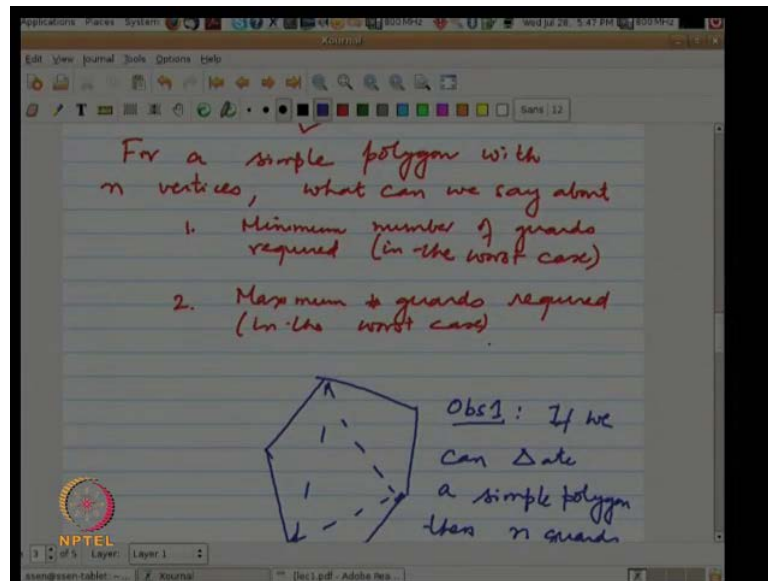 Applications Places System 800 MHz Wed Jul 28, 5:47 PM 800 MHz
Xournal
Edit View Journal Tools Options Help
Sans 12
For a simple polygon with
n vertices, what can we say about
1. Minimum number of guards
required (in the worst case)
2. Maximum # guards required
(in the worst case)
Obs1: If we
can Δate
a simple polygon
then n guards
NPTEL
3 of 5 Layer: Layer 1
ssen@ssen-tablet: ~... Xournal [lec1.pdf - Adobe Rea...